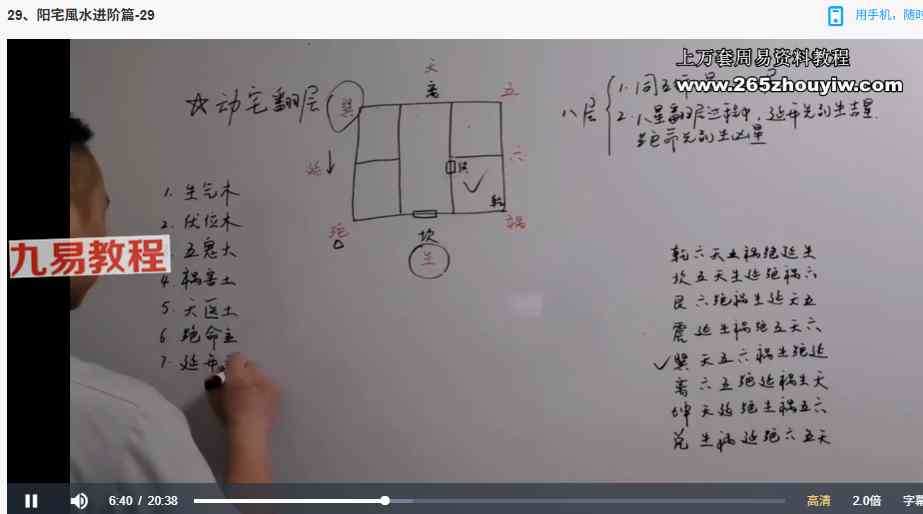 29、阳宅風水进阶篇-29
用手机，随时
上万套周易资料教程
www.265zhouyiw.com
☆动宅翻层
八层
1.同五行
2.八星翻层过程中，延年先到生吉星
绝命先到生凶星
天
离
五
巽
延
六
乾
绝
祸
坎
生
1.生气木
2.伏位木
五鬼火
4.祸害土
5.天医土
6.绝命金
7.延年
九易教程
乾六天五祸绝延生
坎五天生延绝祸六
艮六绝祸生延天五
震延生祸绝五天六
✓巽天五六祸生绝延
离六五绝延祸生天
坤天延绝生祸五六
兑生祸延绝六五天
6:40 / 20:38
高清
2.0倍
字幕